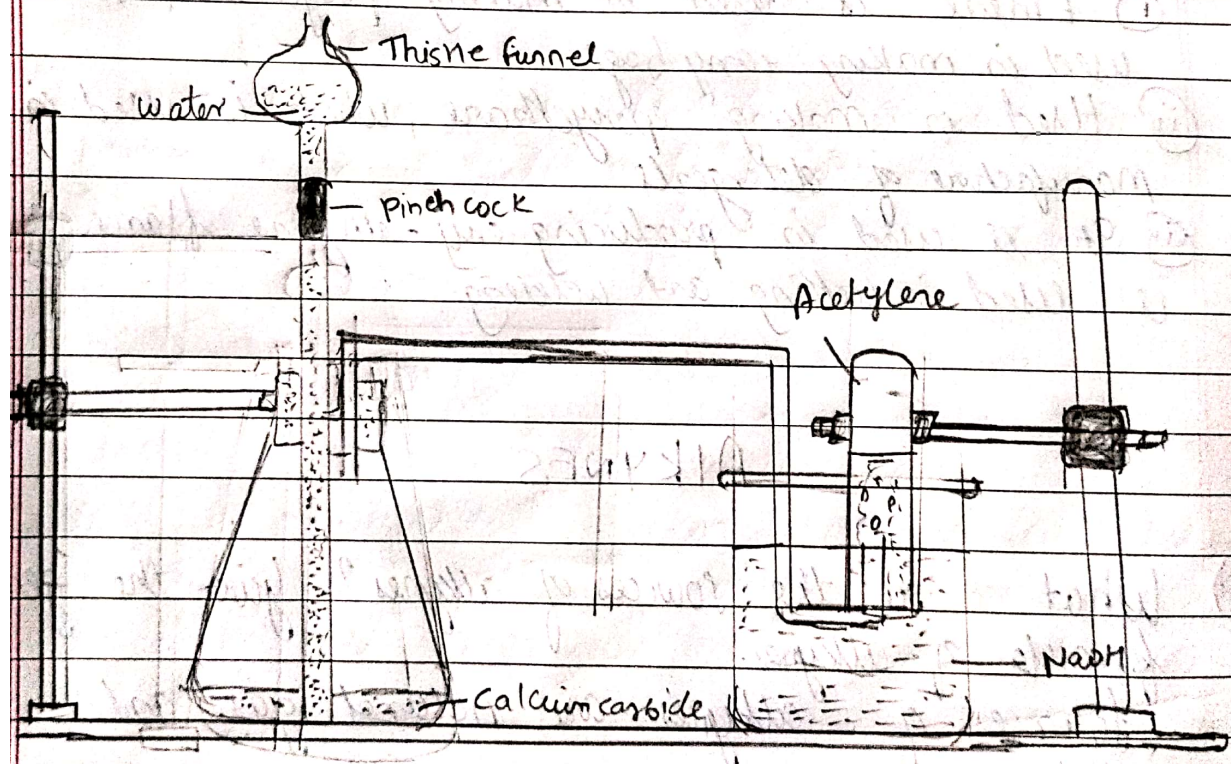 Thistle funnel
water
pinch cock
Acetylene
NaOH
Calcium carbide